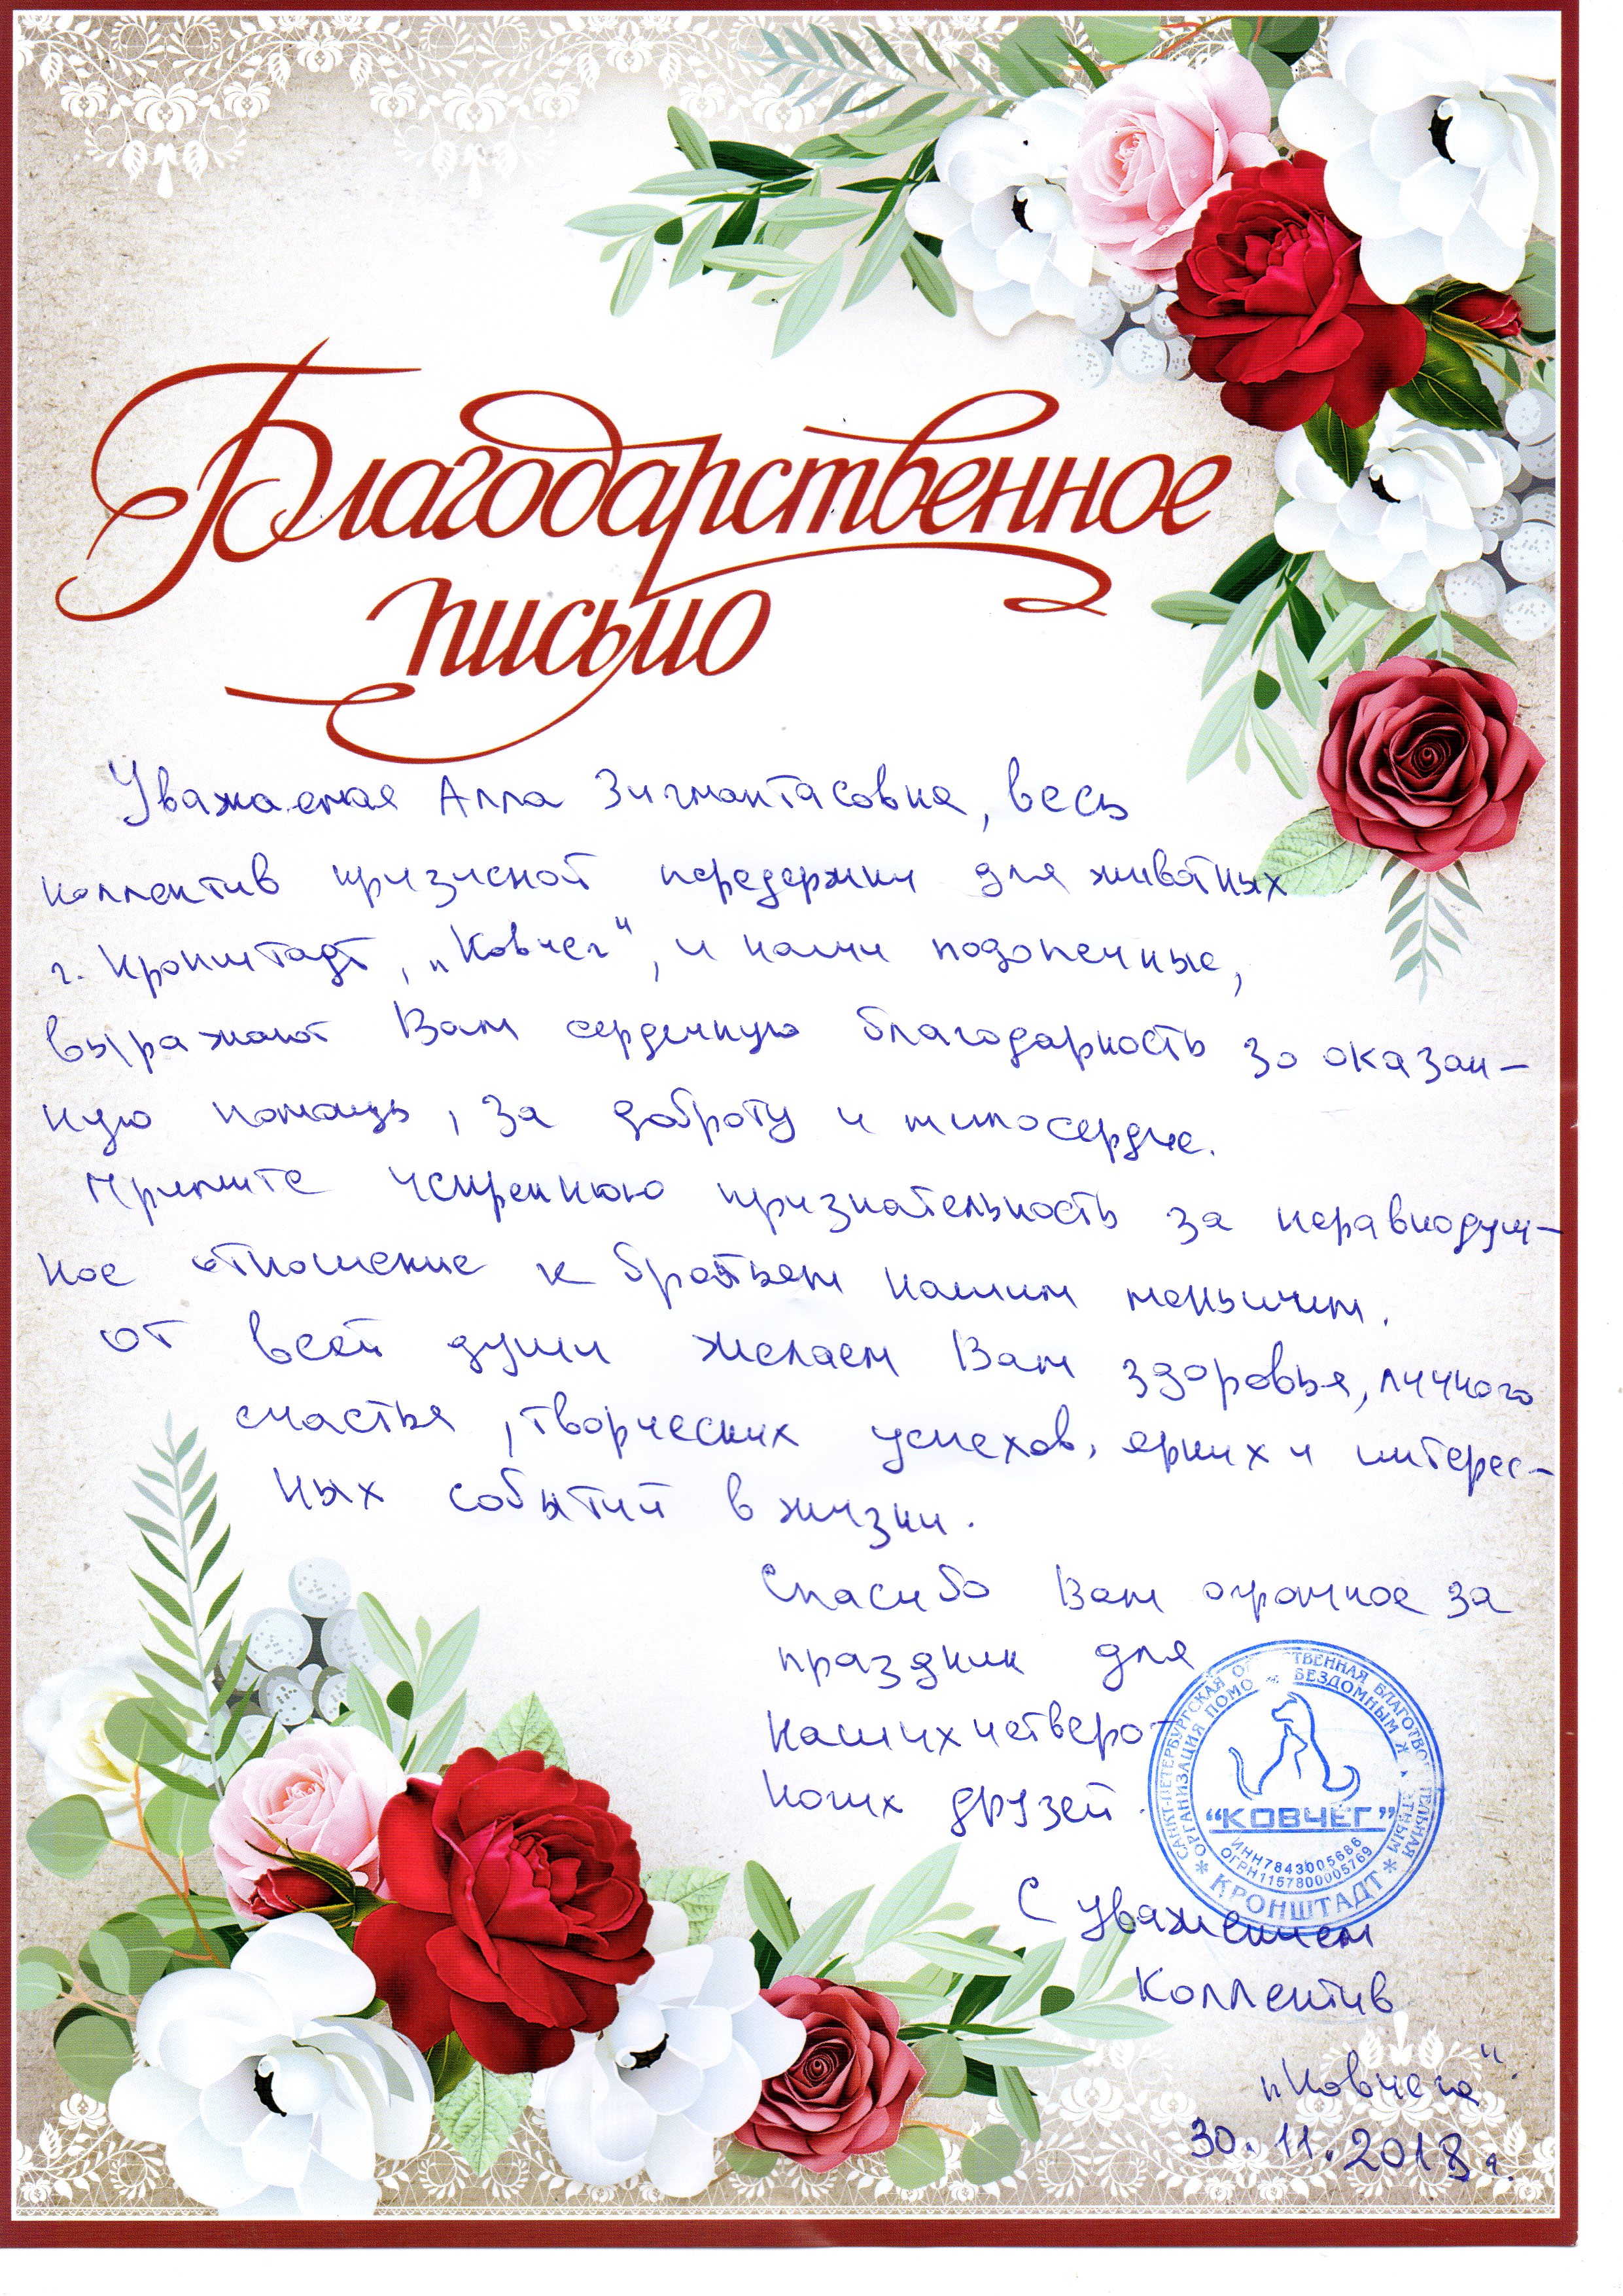 Благодарственное
письмо
Уважаемая Алла Зигмантасовна, весь
коллектив кризисной передержки для животных
г. Кронштадт, „Ковчег", и наши подопечные,
выражают Вам сердечную благодарность за оказан-
ную помощь, за доброту и милосердие.
Примите искреннюю признательность за неравнодуш-
ное отношение к братьям нашим меньшим.
От всей души желаем Вам здоровья, личного
счастья, творческих успехов, ярких и интерес-
ных событий в жизни.
Спасибо Вам огромное за
праздник для
наших четверо-
ногих друзей.
САНКТ-ПЕТЕРБУРГСКАЯ ОБЩЕСТВЕННАЯ БЛАГОТВОРИТЕЛЬНАЯ
ОРГАНИЗАЦИЯ ПОМОЩИ БЕЗДОМНЫМ ЖИВОТНЫМ
"КОВЧЕГ"
ИНН7843005686
ОГРН1157800005769
* КРОНШТАДТ *
С уважением
Коллектив
„Ковчега"
30.11.2018 г.